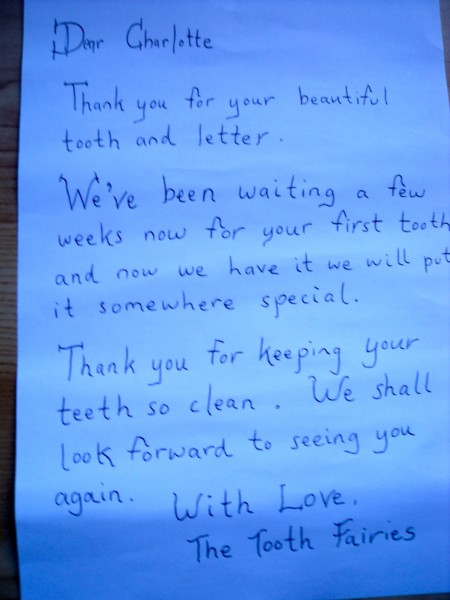 Dear Charlotte
Thank you for your beautiful
tooth and letter.
We've been waiting a few
weeks now for your first tooth
and now we have it we will put
it somewhere special.
Thank you for keeping your
teeth so clean. We shall
look forward to seeing you
again. With Love.
The Tooth Fairies